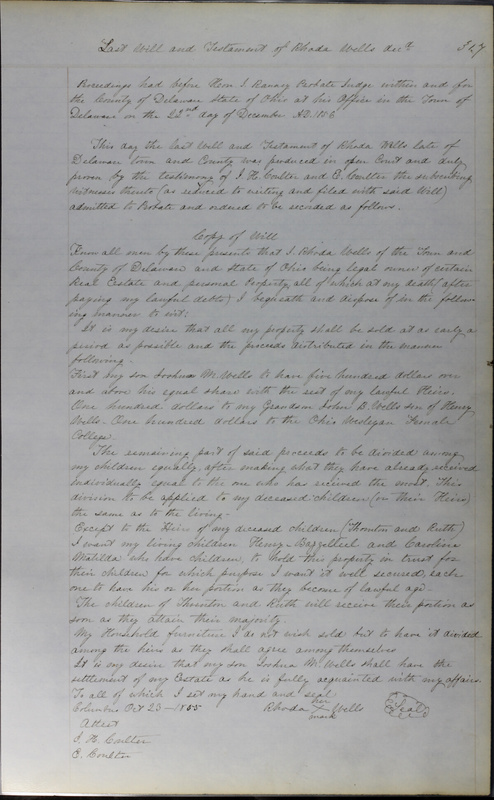 Last Will and Testament of Rhoda Wells decd. 327
Proceedings had before Thom. J. Probate Judge within and for
the County of Delaware State of Ohio at his Office in the Town of
Delaware on the 22nd day of December AD. 1856
This day the last Will and Testament of Rhoda Wells late of
Delaware town and County was produced in open Court and duly
proven by the testimony of J. H. Coulter and C. Coulter the subscribing
witnesses thereto (as reduced to writing and filed with said Will)
admitted to Probate and ordered to be recorded as follows.
Copy of Will
Know all men by these presents that I Rhoda Wells of the Town and
County of Delaware and State of Ohio being legal owner of certain
Real Estate and personal Property, all of which at my death (after
paying my lawful debts) I bequeath and dispose of in the follow-
ing manner to wit:
It is my desire that all my property shall be sold at as early a
period as possible and the proceeds distributed in the manner
following-
First my son Joshua M. Wells to have five hundred dollars over
and above his equal share with the rest of my lawful Heirs-
One hundred dollars to my Grandson John B. Wells son of Henry
Wells- One hundred dollars to the Ohio Wesleyan Female
College
The remaining part of said proceeds to be divided among
my children equally, after making what they have already received
individually equal to the one who has received the most. This
division to be applied to my deceased children (or their Heirs)
the same as to the living-
Except to the Heirs of my deceased children (Thornton and Ruth)
I want my living children Henry- and Carolina
Matilda who have children, to hold this property in trust for
their children for which purpose I want it well secured, each
one to have his or her portion as they become of lawful age-
The children of Thornton and Ruth will receive their portion as
soon as they attain their majority.
My Household furniture I do not wish sold but to have it divided
among the heirs as they shall agree among themselves
It is my desire that my son Joshua M. Wells shall have the
settlement of my Estate as he is fully acquainted with my affairs.
To all of which I set my hand and seal
Columbus Oct 23- 1855 Rhoda her X mark Wells Seal
Attest
J. H. Coulter
C. Coulter